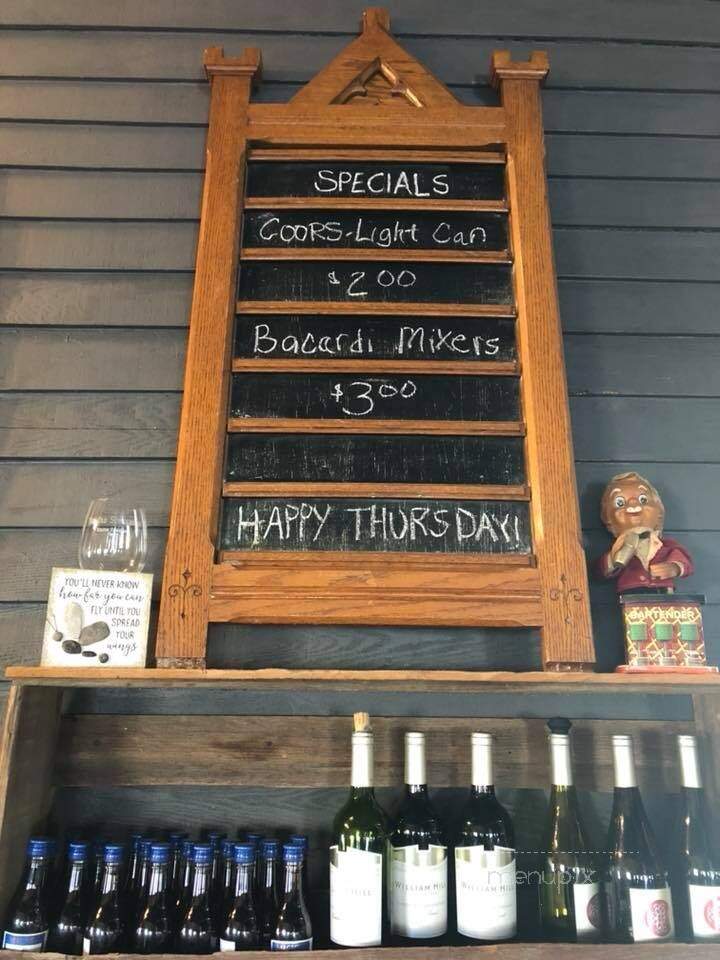 SPECIALS
COORS-Light Can
$2.00
Bacardi Mixers
$3.00
HAPPY THURSDAY!
YOU'LL NEVER KNOW
how far you can
FLY UNTIL YOU
SPREAD
YOUR
wings
BARTENDER
HILL
WILLIAM HILL
WILLIAM HILL
menupix